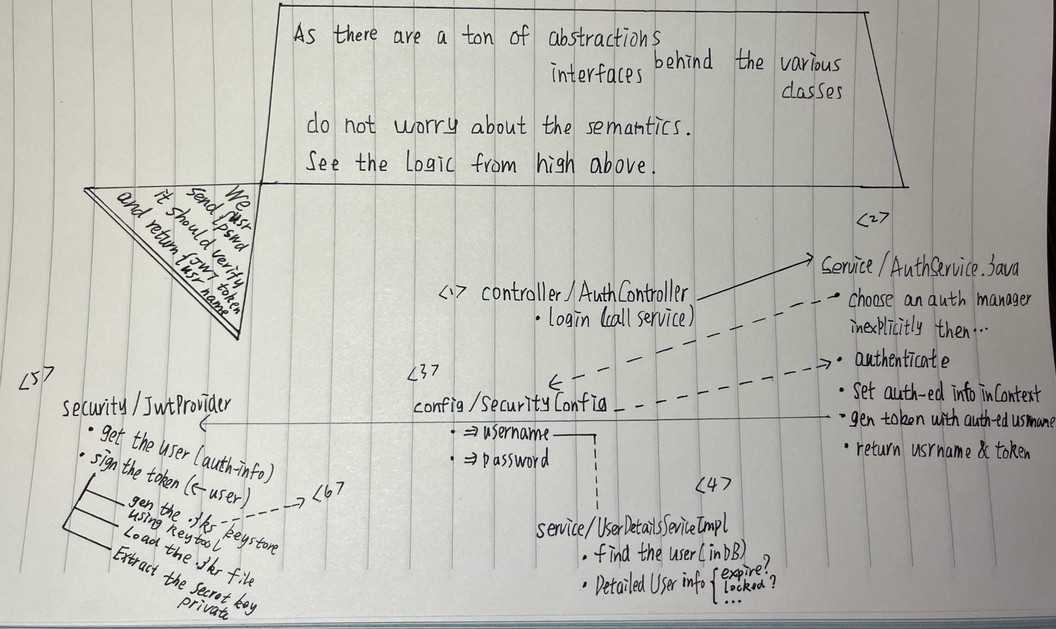 As there are a ton of abstractions
interfaces behind the various
classes
do not worry about the semantics.
See the Logic from high above.
We
send {usr
pswd
it should verify
and return {JWT token
usr name
<1> controller/AuthController
• login (call service)
<2>
Service/AuthService.java
• choose an auth manager
inexplicitly then...
• authenticate
• Set auth-ed info in Context
• gen token with auth-ed usrname
• return usrname & token
<3>
config/SecurityConfig
• ⇒ username
• ⇒ password
<4>
service/UserDetailsSeviceImpl
• find the user (in DB)
• Detailed User info { expire?
locked?
...
<5>
security/JwtProvider
• get the user (auth-info)
• sign the token (← user)
gen the .jks - keystore
using keytool
<6>
Load the .jks file
Extract the secret key
private